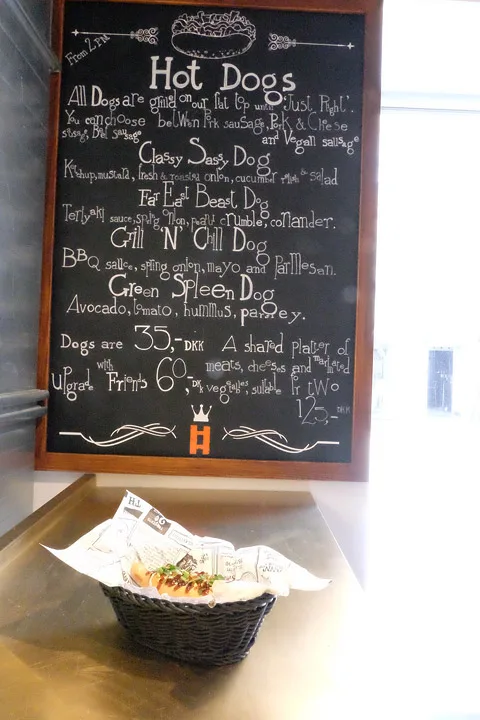 From 2 PM
Hot Dogs
All Dogs are grilled on our flat top until "Just Right".
You can choose between Pork sausage, Pork & Cheese
sausage, Beef sausage and Vegan sausage
Classy Sassy Dog
Ketchup, mustard, fresh & roasted onion, cucumber relish & salad
Far East Beast Dog
Teriyaki sauce, spring onion, peanut crumble, coriander.
Grill 'N' Chill Dog
BBQ sauce, spring onion, mayo and parmesan.
Green Spleen Dog
Avocado, tomato, hummus, parsley.
Dogs are 35,- DKK
upgrade with Fries 60,- DKK
A shared platter of
meats, cheeses and marinated
vegetables, suitable for two
125,- DKK
H